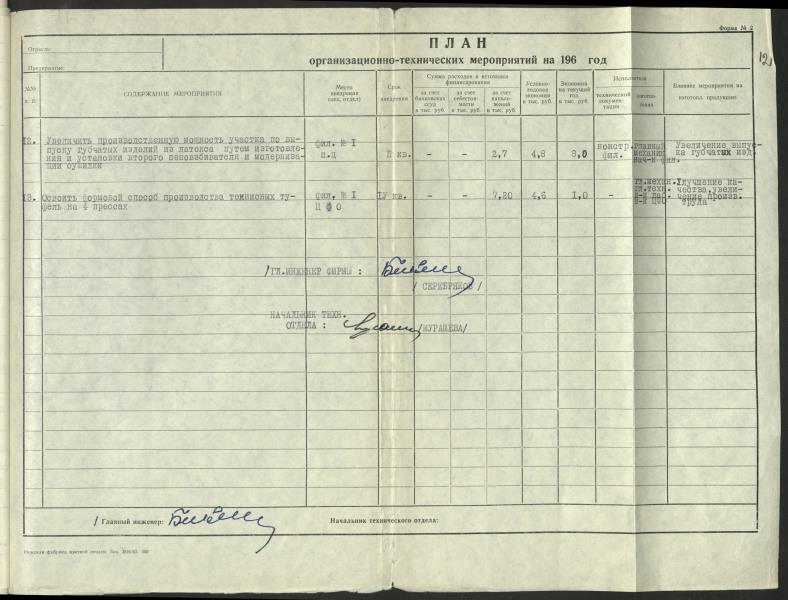 Форма № 2
12
Отрасль:
Предприятие:
ПЛАН
организационно-технических мероприятий на 196 год
№№ п. п.
СОДЕРЖАНИЕ МЕРОПРИЯТИЯ
Место внедрения (цех, отдел)
Срок внедрения
Сумма расходов и источники финансирования
за счет банковских ссуд в тыс. руб.
за счет себестоимости в тыс. руб.
за счет капвложений в тыс. руб.
Условно-годовая экономия в тыс. руб.
Экономия на текущий год в тыс. руб.
Исполнители
технической документации
изготовления
Влияние мероприятия на
изготовл. продукции
12. Увеличить производственную мощность участка по вы-
пуску губчатых изделий из латекса путем изготовле-
ния и установки второго пеновзбивателя и модерниза-
ции сушилки
фил. № I
п.ц
II кв. - - 2,7 4,8 3,0
констр.
фил.
главный
механик
нач-к фил.
Увеличение выпус-
ка губчатых изд.
13. Освоить формовой способ производства теннисных ту-
фель на 4 прессах
фил. № I
Ц Ф О
IУ кв. - - 7,20 4,6 1,0 -
гл.механ.
гл.техн.
н-к ЦФО
Улучшение ка-
чества, увели-
чение произв.
труда
ГЛ.ИНЖЕНЕР ФИРМЫ :
/ СЕРЕБРЯКОВ /
НАЧАЛЬНИК ТЕХН.
ОТДЕЛА : /МУРАШЕВА/
Главный инженер: Начальник технического отдела:
Рижская фабрика цветной печати Зак.